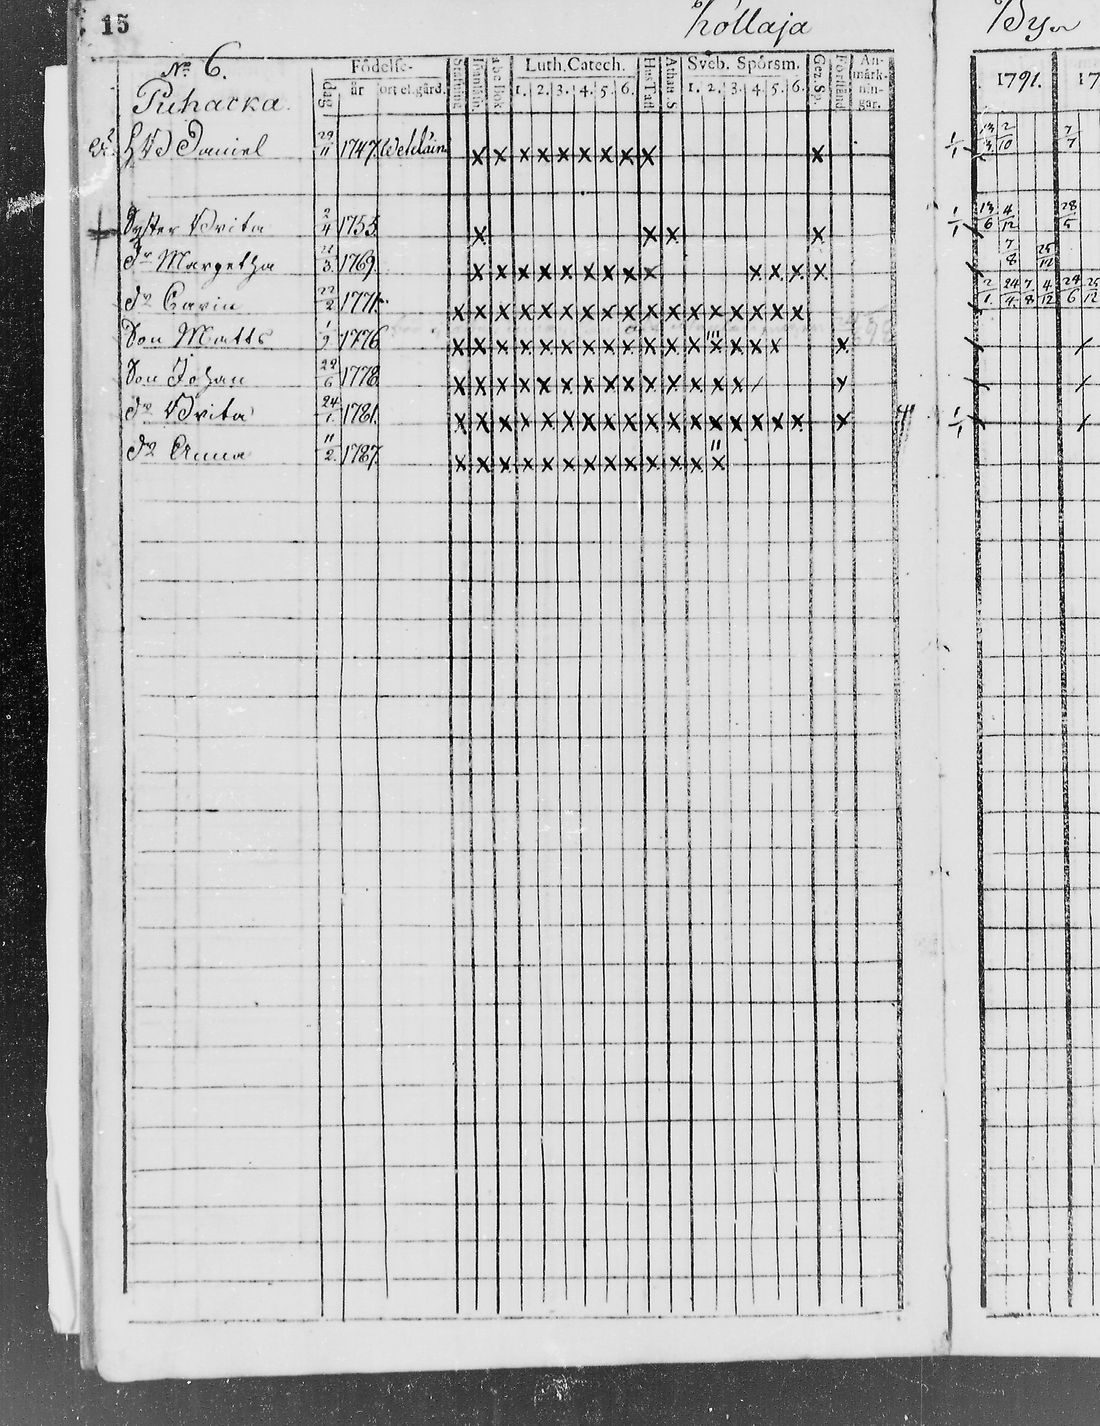 15 Kollaja Byn
No 6.
Puhacka.
Födelse- dag år ort el. gård. Luth. Catech. 1. 2. 3. 4. 5. 6. Hus Tafl Athan. S Sveb. Spörsm. 1. 2. 3. 4. 5. 6. Gez. Sp. Förstånd An-märk-nin-gar. 1791. 17
Daniel 29/11 1747 x x x x x x x x x x 13/3 2/10 7/7
Syster Brita 2/4 1755 x x x x 1/1 13/6 4/12 28/5
Dr Margetha 1769 x x x x x x x x x x x x x 7/8 25/12
do Carin 22/2 1771 x x x x x x x x x x x x x x x x x 2/1 24/4 7/8 4/12 29/6 25/12
Son Matts 1776 x x x x x x x x x x x x x x x x x
Son Johan 22/6 1778 x x x x x x x x x x x x x x
do Brita 24/1 1781 x x x x x x x x x x x x x x x x x x 1/1
do Anna 11/2 1787 x x x x x x x x x x x x